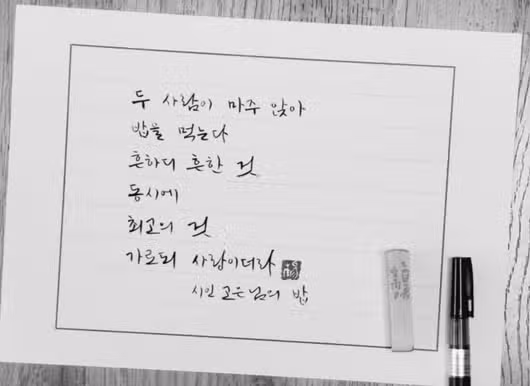 두 사람이 마주 앉아
밥을 먹는다
흔하디 흔한 것
동시에
최고의 것
가로되 사랑이더라
시인 고은님의 밥